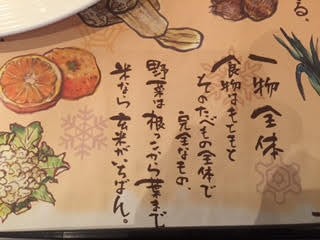 る、
一物全体
食物はもともと
そのたべもの全体で
完全なもの、
野菜は根っこから葉まで
米なら玄米がいちばん。